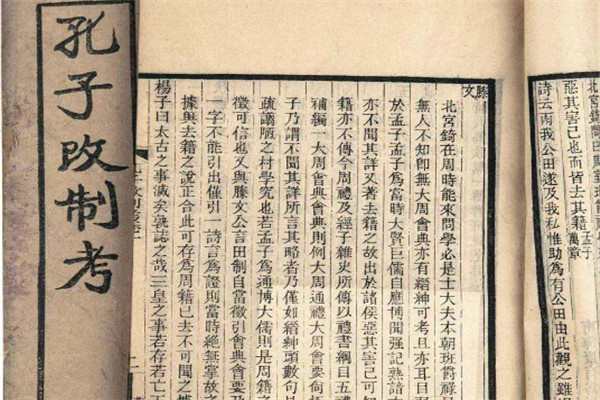 北宮錡問曰周室班爵祿
惡其害己也而皆去其籍孟子萬章
詩云雨我公田遂及我私惟助為有公田由此觀之雖
滕文
北宮錡在周時能來問學必是士大夫本朝班爵祿
無人不知即無大周會典亦有縉紳可考且亦耳目
於孟子孟子為當時大賢巨儒自應博聞強記熟諳
亦不聞其詳又著去籍之故出於諸侯惡其害己可
籍亦不傳今周禮及經子雜史所傳以禮書綱目五禮
補編一大周會典會典則例大周通禮大周會要尚
子乃謂不聞其詳所言其略者乃僅如縉紳頭數句
疏謭陋之村學究也若孟子為通博大儒則是周籍
徵可信也又與滕文公言田制自當徵引會典會要乃
一字不能引出僅引一詩言為證則當時絕無掌故
據與去籍之說正合此可存為周籍已去不可聞之據
楊子曰太古之事滅矣孰誌之哉三皇之事若存若亡
孔子改制考